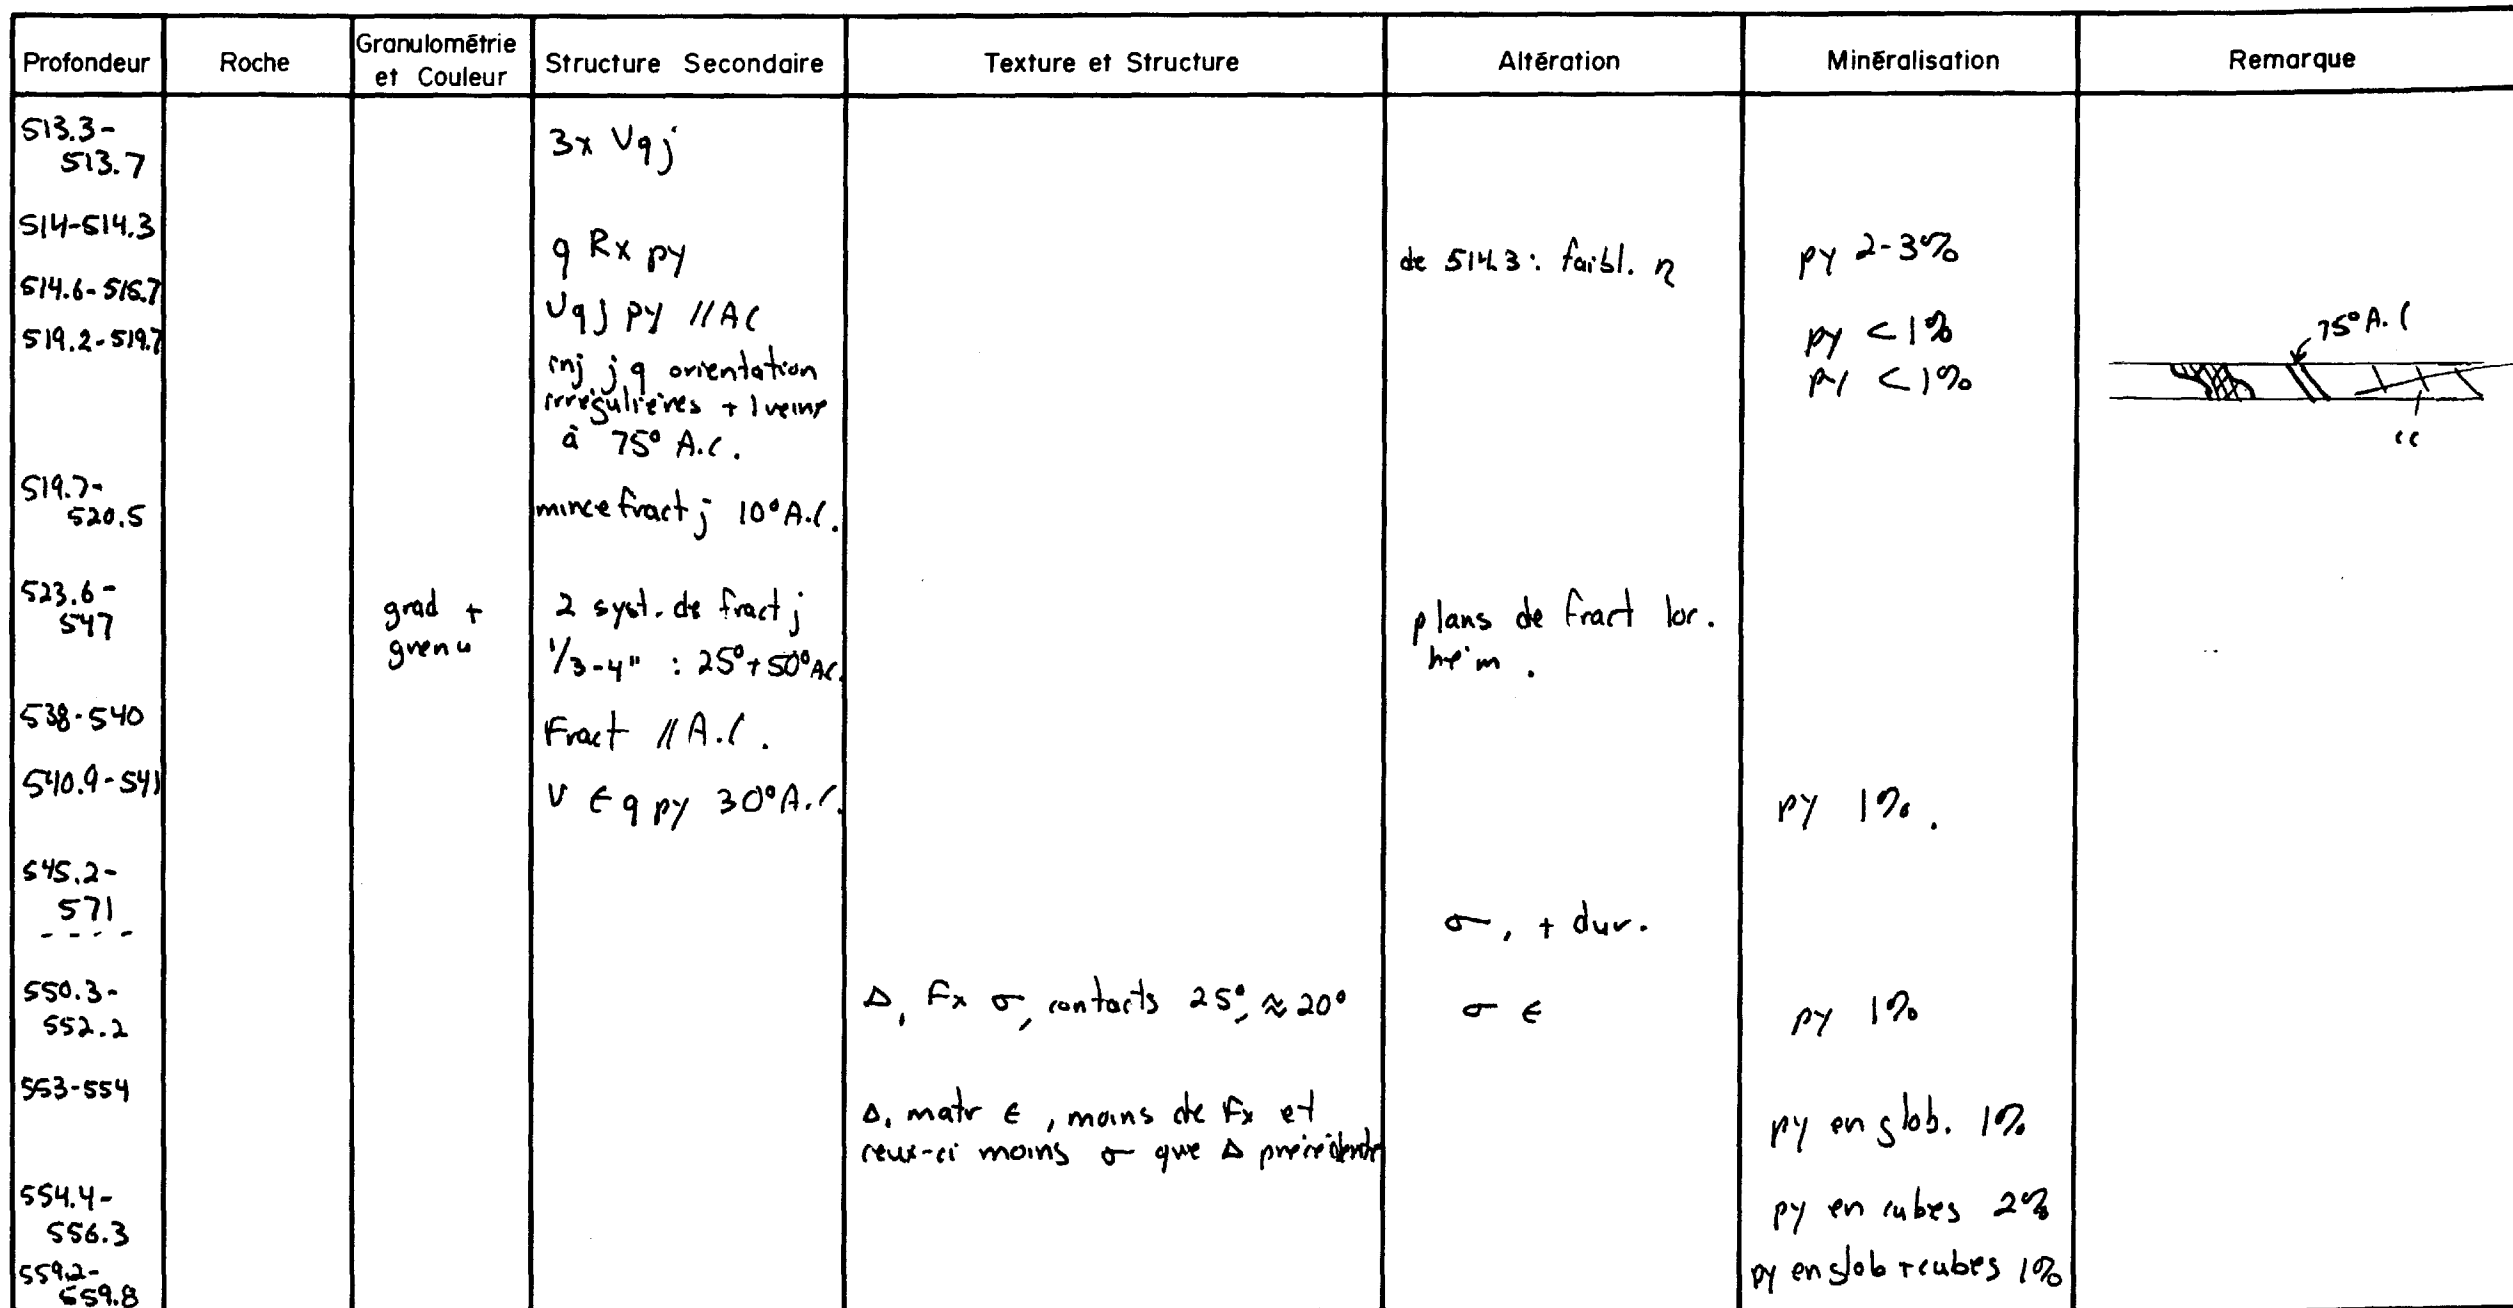 Profondeur Roche Granulométrie et Couleur Structure Secondaire Texture et Structure Altération Minéralisation Remarque
513.3-
513.7
3x Vqj
514-514.3
q Rx py de 514.3: faibl. η py 2-3%
514.6-515.7
Vqj py //AC py <1%
519.2-519.7
inj j q orientation py <1%
irrégulières + 1 veine
à 75° A.C.
75° A.C
cc
519.7-
520.5
mince fract j 10° A.C.
523.6-
547
grad + 2 syst. de fract j plans de fract lor.
grenu 1/3-4" : 25°+50° AC. hém.
538-540
Fract // A.C.
540.9-541
V ϵ q py 30° A.C. py 1%.
545.2-
571
- - - -
σ, + dur.
550.3-
552.2
Δ, Fx σ, contacts 25°, ≈ 20° σ ϵ py 1%
553-554
Δ, matr ϵ, moins de Fx et py en glob. 1%
ceux-ci moins σ que Δ précédente
554.4-
556.3
py en cubes 2%
559.2-
559.8
py en glob + cubes 1%